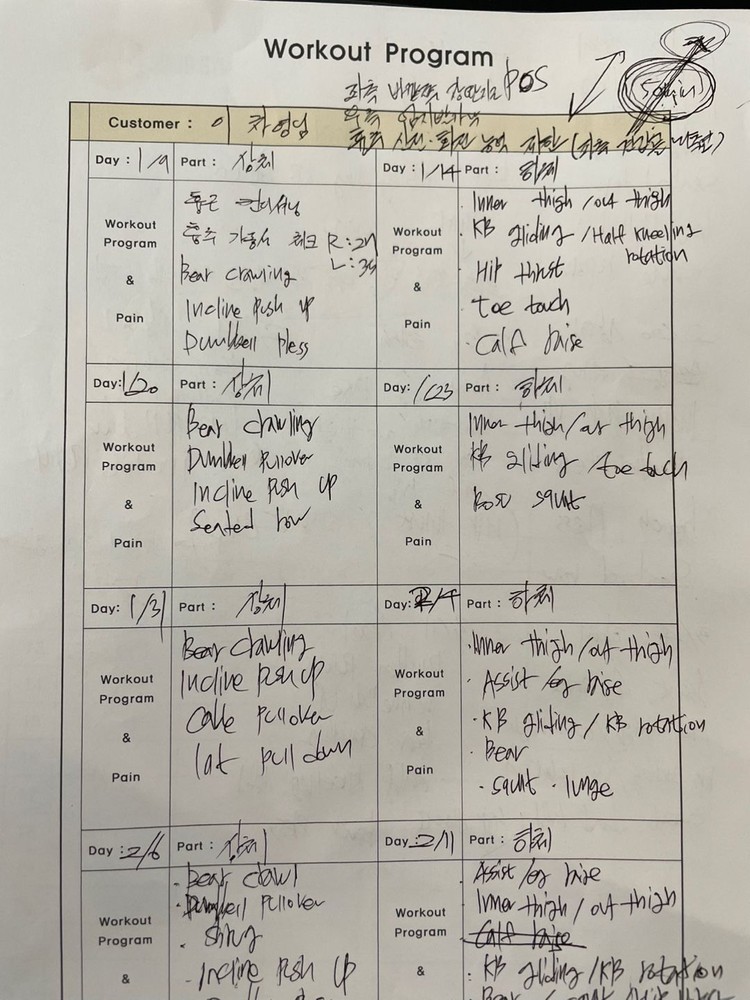 Workout Program
좌측 바깥쪽 장딴지근 POS
50min
Customer : 이 차영님
Day : 1/9 Part : 상체
Workout Program & Pain
등근 컨디셔닝
흉추 가동성 체크 R:27
L:35
Bear crawling
Incline Push up
Dumbbell Pless
Day : 1/14 Part : 하체
Workout Program & Pain
· Inner thigh / out thigh
· KB gliding / Half kneeling rotation
· Hip thrust
· toe touch
· Calf Raise
Day: 1/20 Part : 상체
Workout Program & Pain
Bear crawling
Dumbbell Pullover
Incline Push up
Seated Row
Day: 1/23 Part : 하체
Workout Program & Pain
Inner thigh / out thigh
KB gliding / toe touch
squat
Day: 1/31 Part : 상체
Workout Program & Pain
Bear crawling
Incline Push up
Cable Pullover
lat pull down
Day: 2/4 Part : 하체
Workout Program & Pain
· Inner thigh / out thigh
· Assist leg raise
· KB gliding / KB rotation
· Bear
· squat · lunge
Day : 2/6 Part : 상체
Workout Program &
· Bear crawl
· Dumbbell Pullover
· Shrug
· Incline Push up
Day : 2/11 Part : 하체
Workout Program &
Assist leg raise
Inner thigh / out thigh
Calf raise
· KB gliding / KB rotation